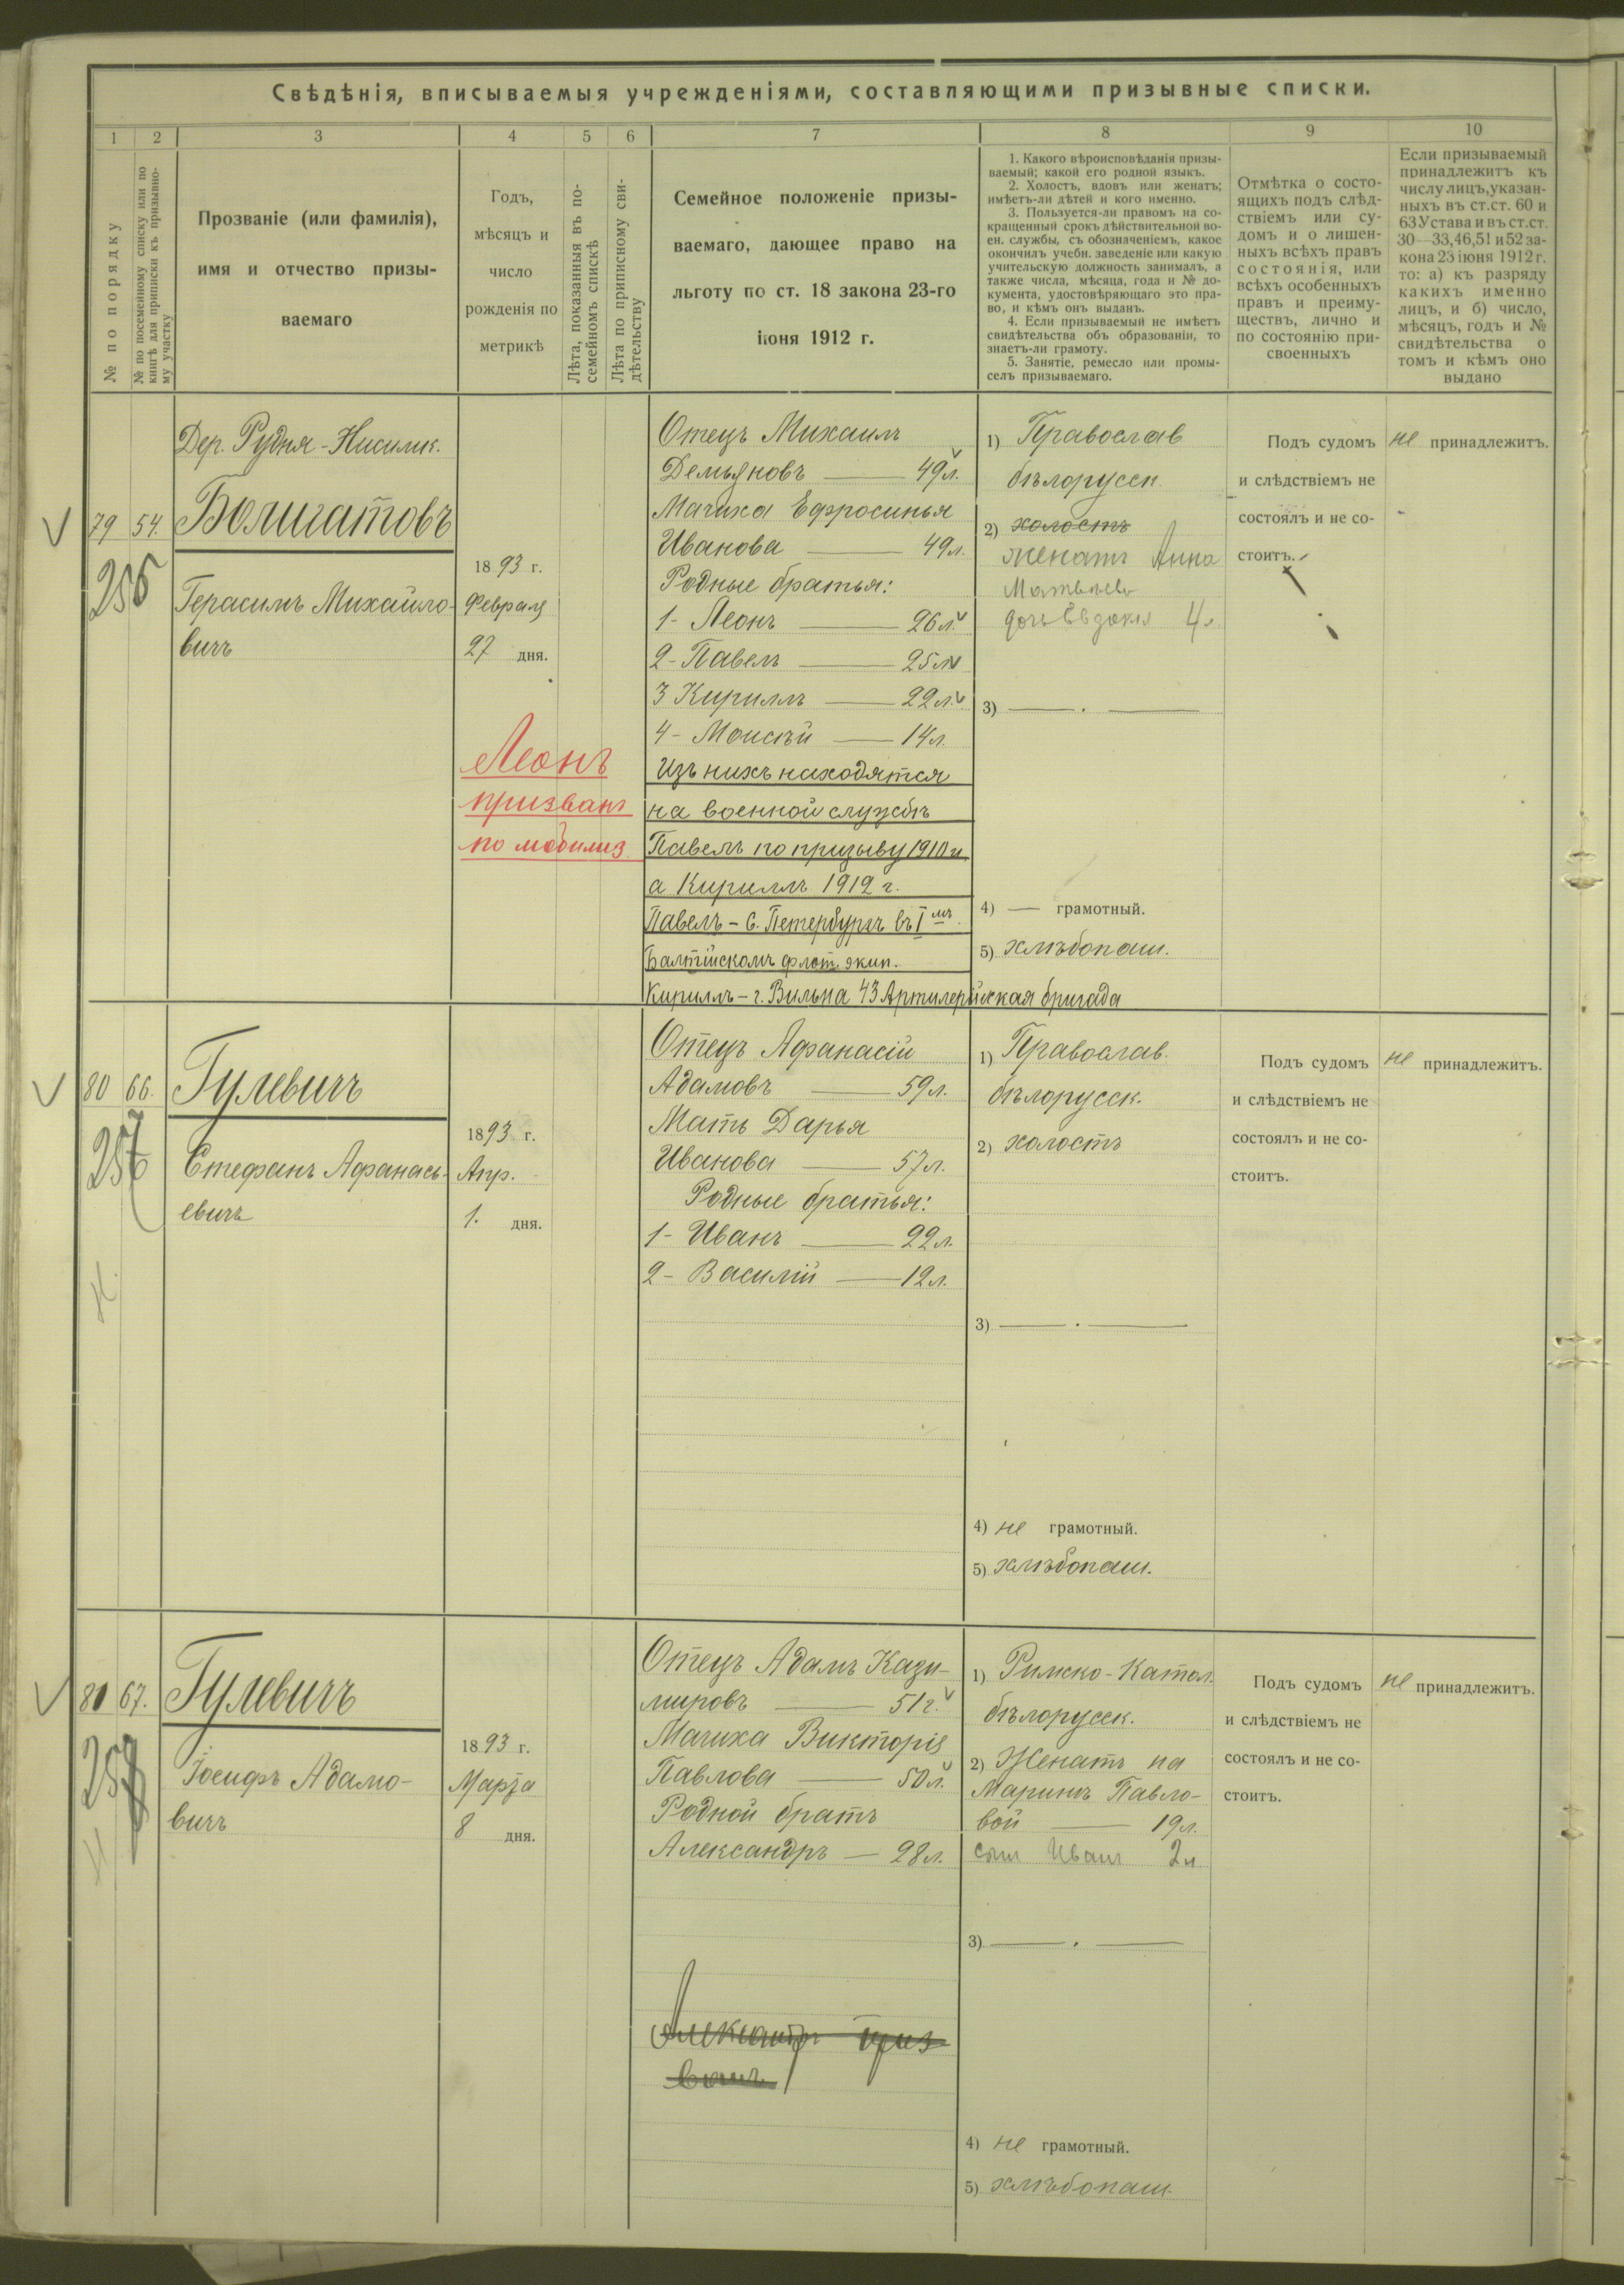 Свѣдѣнія, вписываемыя учрежденіями, составляющими призывные списки.
1 2 3 4 5 6 7 8 9 10
№ по порядку
№ по посемейному списку или по
книгѣ для приписки къ призывно-
му участку
Прозваніе (или фамилія),
имя и отчество призы-
ваемаго
Годъ,
мѣсяцъ и
число
рожденія по
метрикѣ
Лѣта, показанныя въ по-
семейномъ спискѣ
Лѣта по приписному сви-
дѣтельству
Семейное положеніе призы-
ваемаго, дающее право на
льготу по ст. 18 закона 23-го
іюня 1912 г.
1. Какого вѣроисповѣданія призы-
ваемый; какой его родной языкъ.
2. Холостъ, вдовъ или женатъ;
имѣетъ-ли дѣтей и кого именно.
3. Пользуется-ли правомъ на со-
кращенный срокъ дѣйствительной во-
ен. службы, съ обозначеніемъ, какое
окончилъ учебн. заведеніе или какую
учительскую должность занималъ, а
также числа, мѣсяца, года и № до-
кумента, удостовѣряющаго это пра-
во, и кѣмъ онъ выданъ.
4. Если призываемый не имѣетъ
свидѣтельства объ образованіи, то
знаетъ-ли грамоту.
5. Занятіе, ремесло или промы-
селъ призываемаго.
Отмѣтка о состо-
ящихъ подъ слѣд-
ствіемъ или су-
домъ и о лишен-
ныхъ всѣхъ правъ
состоянія, или
всѣхъ особенныхъ
правъ и преиму-
ществъ, лично и
по состоянію при-
своенныхъ
Если призываемый
принадлежитъ къ
числу лицъ, указан-
ныхъ въ ст.ст. 60 и
63 Устава и въ ст.ст.
30—33, 46, 51 и 52 за-
кона 23 іюня 1912 г.
то: а) къ разряду
какихъ именно
лицъ, и б) число,
мѣсяцъ, годъ и №
свидѣтельства о
томъ и кѣмъ оно
выдано
79 54.
Дер. Рудня-
Герасимъ Михайло-
вичъ
1893 г.
Февраля
27 дня.
Леонъ
призванъ
по мобилиз
Отецъ Михаилъ
Демьяновъ — 49 л.
Мачиха Ефросинья
Иванова — 49 л.
Родные братья:
1- Леонъ — 26 л.
2- Павелъ — 25 л.
3 Кириллъ — 22 л.
4- Моисѣй — 14 л.
Изъ нихъ находятся
на военной службѣ
Павелъ по призыву 1910 г.
а Кириллъ 1912 г.
Павелъ - С. Петербургъ въ I мъ
Балтійскомъ флот. экип.
Кириллъ - г. Вильна 43 Артилерійская бригада
1) Православ
бѣлорусск.
2) холостъ
женатъ Анна
Матвѣева
дочь Евдокія 4 л.
3) — . —
4) — грамотный.
5) хлѣбопаш.
Подъ судомъ
и слѣдствіемъ не
состоялъ и не со-
стоитъ.
не принадлежитъ.
80 66.
Гулевичъ
Стефанъ Афанась-
евичъ
1893 г.
Апр.
1. дня.
Отецъ Афанасій
Адамовъ — 59 л.
Мать Дарья
Иванова — 57 л.
Родные братья:
1- Иванъ — 22 л.
2- Василій — 12 л.
1) Православ.
бѣлорусск.
2) холостъ
3) — . —
4) не грамотный.
5) хлѣбопаш.
Подъ судомъ
и слѣдствіемъ не
состоялъ и не со-
стоитъ.
не принадлежитъ.
81 67.
Гулевичъ
Іосифъ Адамо-
вичъ
1893 г.
Марта
8 дня.
Отецъ Адамъ Кази-
міровъ — 51 г.
Мачиха Викторія
Павлова — 50 л.
Родной братъ
Александръ — 28 л.
Александръ приз
ванъ
1) Римско-Катол.
бѣлорусск.
2) Женатъ на
Маринѣ Павло-
вой — 19 л.
сынъ Иванъ 2 л.
3) — . —
4) не грамотный.
5) хлѣбопаш.
Подъ судомъ
и слѣдствіемъ не
состоялъ и не со-
стоитъ.
не принадлежитъ.